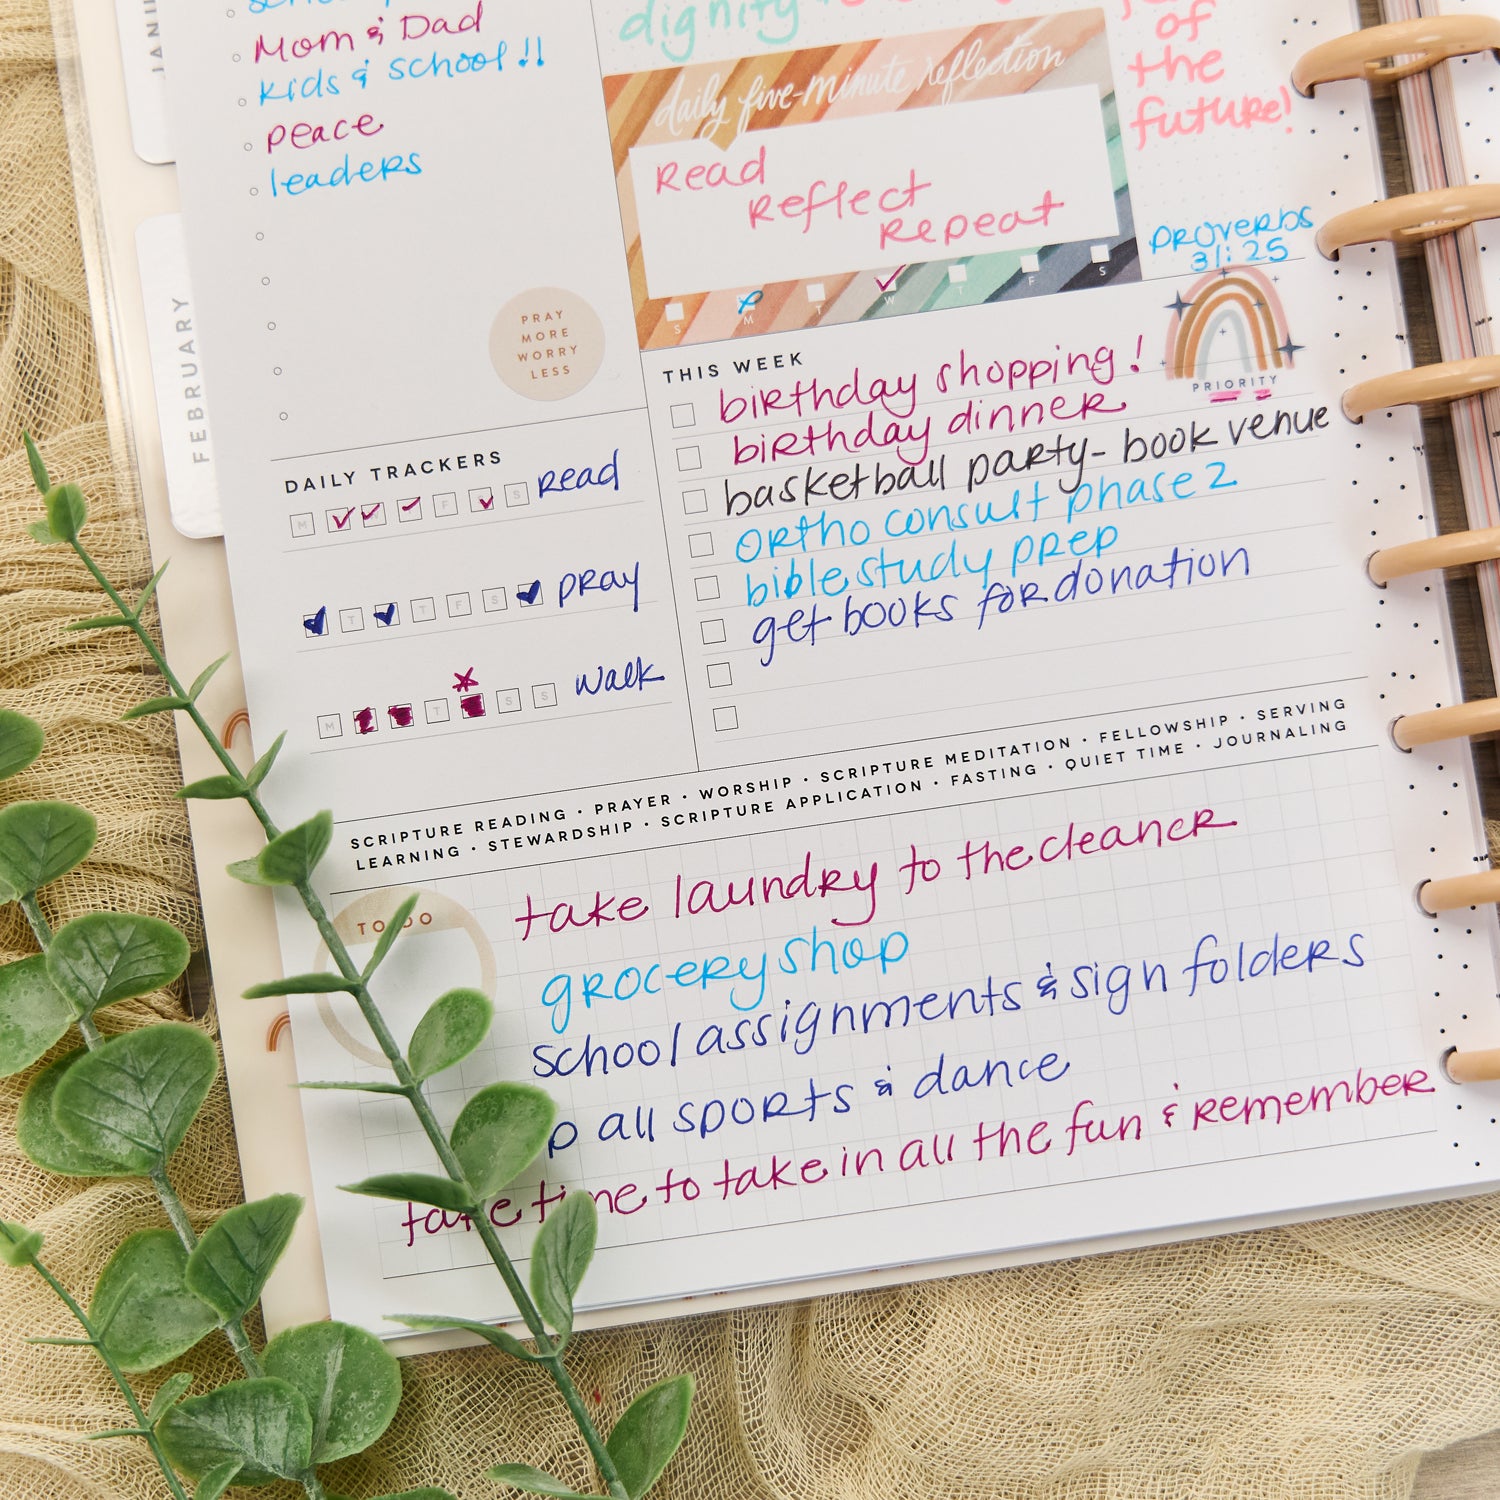 Mom & Dad
kids & school!!
peace
leaders
PRAY
MORE
WORRY
LESS
dignity
of
the
future!
daily five-minute reflection
Read
Reflect
Repeat
S M T W T F S
Proverbs
31:25
PRIORITY
FEBRUARY
DAILY TRACKERS
M F S Read
T T F S pray
M T S S walk
THIS WEEK
birthday shopping!
birthday dinner
basketball party - book venue
ortho consult phase 2
bible study prep
get books for donation
SCRIPTURE READING • PRAYER • WORSHIP • SCRIPTURE MEDITATION • FELLOWSHIP • SERVING
LEARNING • STEWARDSHIP • SCRIPTURE APPLICATION • FASTING • QUIET TIME • JOURNALING
TO DO
take laundry to the cleaner
grocery shop
school assignments & sign folders
all sports & dance
take time to take in all the fun & remember